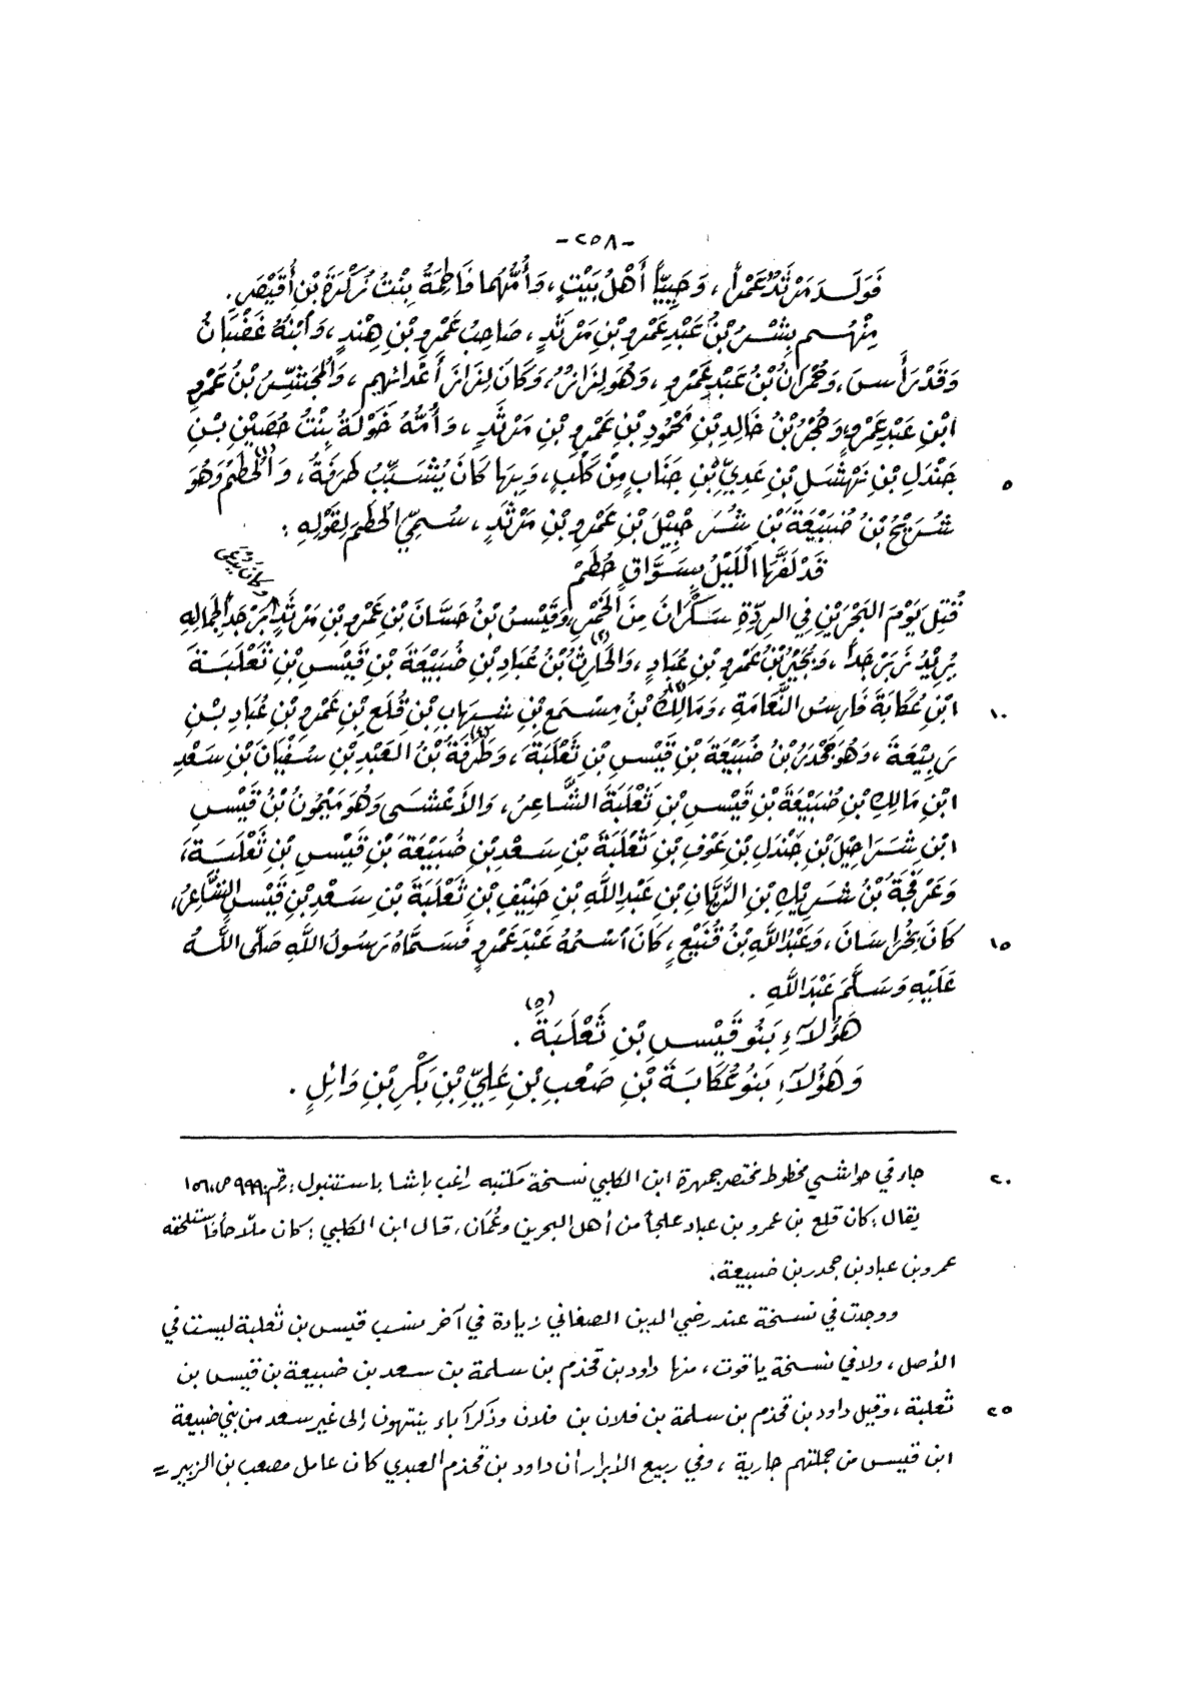 -٢٥٨-
فَوَلَدَ مَرْثَدٌ عَمْرًا، وَحَبِيبًا أَهْلُ بَيْتٍ، وَأُمُّهُمَا فَاطِمَةُ بِنْتُ بْنِ أُقَيْصِرٍ.
مِنْهُم بِشْرُ بْنُ عَبْدِ عَمْرِو بْنِ مَرْثَدٍ، صَاحِبُ عَمْرِو بْنِ هِنْدٍ، وَابْنُهُ غَضْبَانُ
وَقَدْ رَأَسَ، وَحُمْرَانُ بْنُ عَبْدِ عَمْرٍو، وَهُوَ لِزَازٌ، وَكَانَ لِزَازَ أَعْدَائِهِم، وَالْمُجَشِّرُ بْنُ عَمْرِو
ابْنِ عَبْدِ عَمْرٍو، وَحُجْرُ بْنُ خَالِدِ بْنِ مَحْمُودِ بْنِ عَمْرِو بْنِ مَرْثَدٍ، وَأُمُّهُ خَوْلَةُ بِنْتُ حُصَيْنِ بْنِ
٥ جَنْدَلِ بْنِ نَهْشَلِ بْنِ عَدِيِّ بْنِ جَنَابٍ مِنْ كَلْبٍ، وَبِهَا كَانَ يُشَبِّبُ طَرَفَةُ، وَالْحُطَمُ(١) وَهُوَ
شُرَيْحُ بْنُ ضُبَيْعَةَ بْنِ شُرَحْبِيلَ بْنِ عَمْرِو بْنِ مَرْثَدٍ، سُمِّيَ الْحُطَمَ لِقَوْلِهِ:
قَدْ لَفَّهَا اللَّيْلُ بِسَوَّاقٍ حُطَمْ
وَكَانَ يُدْعَى
قُتِلَ يَوْمَ الْبَحْرَيْنِ فِي الرِّدَّةِ سَكْرَانَ مِنَ الْخَمْرِ، وَقَيْسُ بْنُ حَسَّانَ بْنِ عَمْرِو بْنِ مَرْثَدٍ زَبَرْجَدَ لِجَمَالِهِ
يُرِيدُ زَبَرْجَدًا، وَبُجَيْرُ بْنُ عَمْرِو بْنِ عُبَادٍ، وَالْحَارِثُ(٢) بْنُ عُبَادِ بْنِ ضُبَيْعَةَ بْنِ قَيْسِ بْنِ ثَعْلَبَةَ
١٠ ابْنِ عُكَابَةَ فَارِسُ النَّعَامَةِ، وَمَالِكُ(٣) بْنُ مِسْمَعِ بْنِ شِهَابِ بْنِ قُلَعِ بْنِ عَمْرِو بْنِ عُبَادِ بْنِ
رَبِيْعَةَ، وَهُوَ جَحْدَرُ بْنُ ضُبَيْعَةَ بْنِ قَيْسِ بْنِ ثَعْلَبَةَ، وَطَرَفَةُ(٤) بْنُ العَبْدِ بْنِ سُفْيَانَ بْنِ سَعْدِ
ابْنِ مَالِكِ بْنِ ضُبَيْعَةَ بْنِ قَيْسِ بْنِ ثَعْلَبَةَ الشَّاعِرُ، وَالأَعْشَى وَهُوَ مَيْمُونُ بْنُ قَيْسِ
ابْنِ شَرَاحِيلَ بْنِ جَنْدَلِ بْنِ عَوْفِ بْنِ ثَعْلَبَةَ بْنِ سَعْدِ بْنِ ضُبَيْعَةَ بْنِ قَيْسِ بْنِ ثَعْلَبَةَ،
وَعَرْفَجَةُ بْنُ شَرِيْكِ بْنِ الرَّيَّانِ بْنِ عَبْدِ اللَّهِ بْنِ حَنِيْفِ بْنِ ثَعْلَبَةَ بْنِ سَعْدِ بْنِ قَيْسٍ الشَّاعِرُ،
١٥ كَانَ بِخُرَاسَانَ، وَعَبْدُ اللَّهِ بْنُ قُنَيْعٍ، كَانَ اسْمُهُ عَبْدَ عَمْرٍو فَسَمَّاهُ رَسُولُ اللَّهِ صَلَّى اللَّهُ
عَلَيْهِ وَسَلَّمَ عَبْدَ اللَّهِ.
هَؤُلَاءِ بَنُو قَيْسِ بْنِ ثَعْلَبَةَ(٥).
وَهَؤُلَاءِ بَنُو عُكَابَةَ بْنِ صَعْبِ بْنِ عَلِيِّ بْنِ بَكْرِ بْنِ وَائِلٍ.
٢٠ جاء في حواشي مخطوط مختصر جمهرة ابن الكلبي نسخة مكتبه راغب باشا باستنبول: رقم: ٩٩٩ ص، ١٥٦
يقال: كان قلع بن عمرو بن عباد علجاً من أهل البحرين وعُمَان، قال ابن الكلبي: كان ملّاحاً فاستلحقه
عمرو بن عباد بن جحدر بن ضبيعة.
ووجدت في نسخة عند رضي الدين الصغاني زيادة في آخر نسب قيس بن ثعلبة ليست في
الأصل، ولا في نسخة ياقوت، منها داود بن قحذم بن سلمة بن سعد بن ضبيعة بن قيس بن
٢٥ ثعلبة، وقيل داود بن قحذم بن سلمة بن فلان بن فلان وذكر آباء ينتهون إلى غير سعد من بني ضبيعة
ابن قيس من جملتهم جارية، وفي ربيع الأبرار أن داود بن قحذم العبدي كان عامل مصعب بن الزبير =